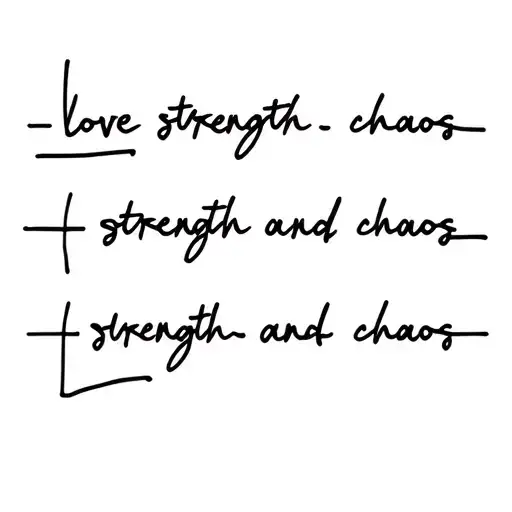 love strength. chaos
strength and chaos
strength and chaos